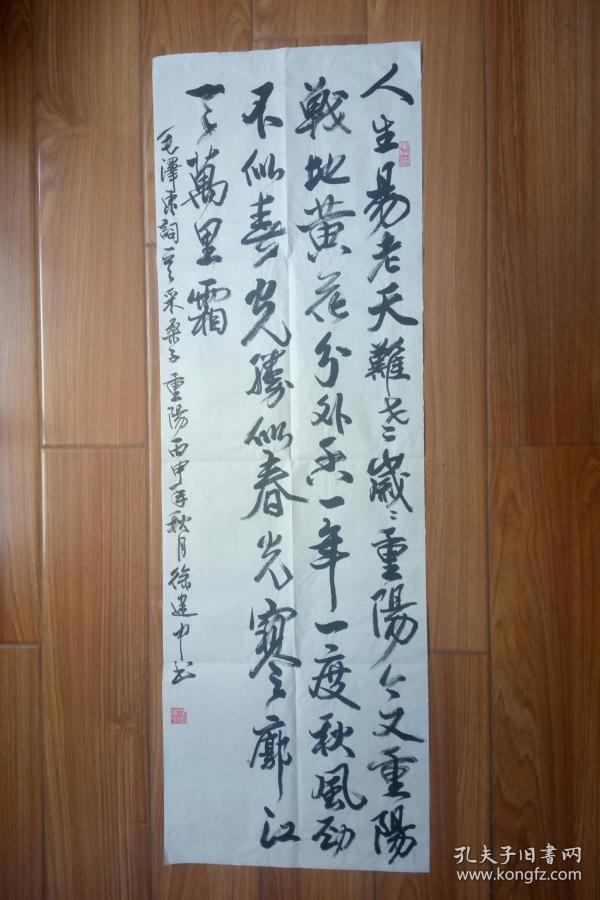 人生易老天難老歲〻重陽今又重陽
戰地黄花分外香一年一度秋風勁
不似春光勝似春光寥廓江
天萬里霜
毛澤東詞一首采桑子重陽丙申年秋月徐建中书
孔夫子旧书网
www.kongfz.com